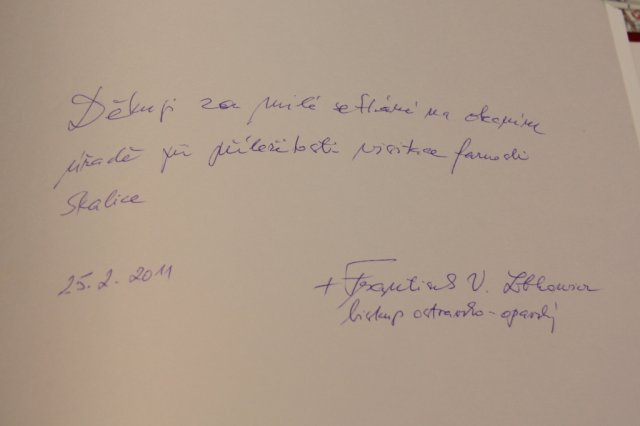 Děkuji za milé setkání na obecním
úřadě při příležitosti visitace farnosti
Skalice
25. 2. 2011
+ František V. Lobkowicz
biskup ostravsko-opavský